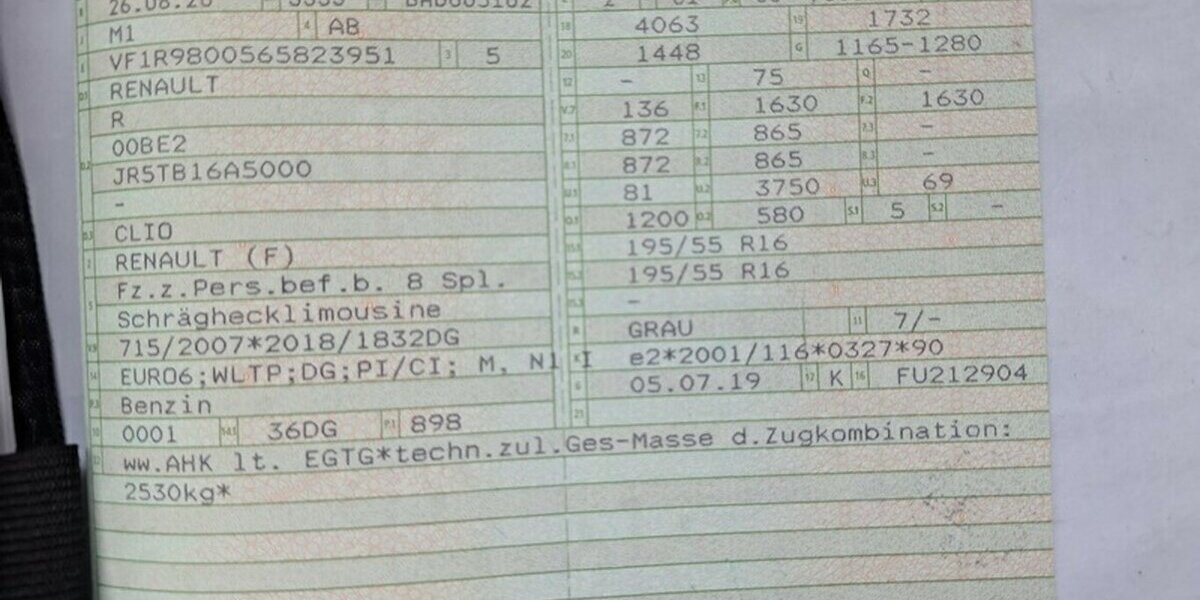 M1 AB
VF1R9800565823951 3 5
RENAULT
R
00BE2
JR5TB16A5000
-
CLIO
RENAULT (F)
Fz.z.Pers.bef.b. 8 Spl.
Schräghecklimousine
715/2007*2018/1832DG
EURO6;WLTP;DG;PI/CI; M, N1 I
Benzin
0001 36DG P.1 898
18 4063 19 1732
20 1448 G 1165-1280
12 - 13 75 Q -
V.7 136 F.1 1630 F.2 1630
7.1 872 7.2 865 7.3 -
8.1 872 8.2 865 8.3 -
U.1 81 U.2 3750 U.3 69
O.1 1200 O.2 580 S.1 5 S.2 -
195/55 R16
195/55 R16
-
R GRAU 11 7/-
K e2*2001/116*0327*90
6 05.07.19 17 K 16 FU212904
21
ww.AHK lt. EGTG*techn.zul.Ges-Masse d.Zugkombination:
2530kg*